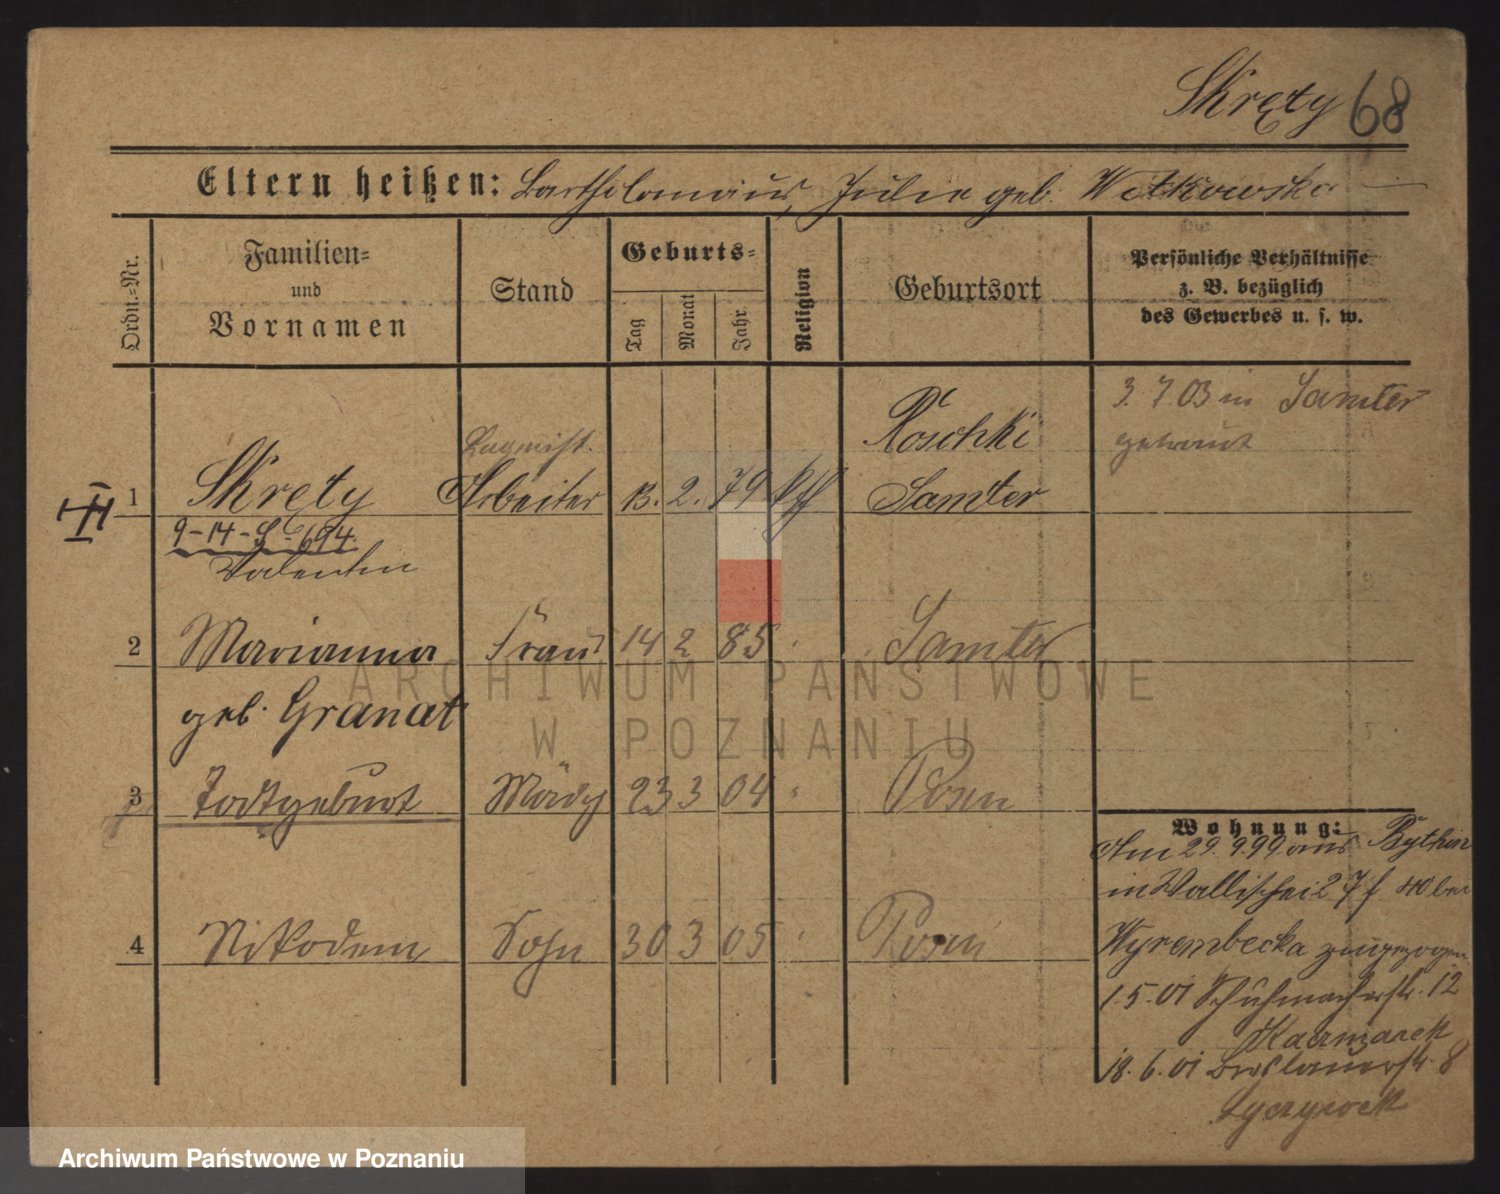 Skręty 68
Eltern heißen: Bartholomäus, Julie geb. Witkowska
Ordn.-Nr.
Familien-
und
Vornamen
Stand
Geburts-
Tag
Monat
Jahr
Religion
Geburtsort
Persönliche Verhältnisse
z. B. bezüglich
des Gewerbes u. s. w.
3. 7. 03 in Samter
getraut
1 Skręty Arbeiter 13. 2. 79 Samter
9-14-S-694.
Valentin
2 Marianna Frau 14 2 85 Samter
geb. Granat
3 Todtgeburt Mädch 23 3 04 Posen
4 Nikodem Sohn 30 3 05 Posen
Wohnung:
Am 29. 9. 99 aus Bythin
in Wallischei 27 40 bei
Wyrembecka zugezogen
1. 5. 01 Schuhmacherstr. 12
Kaczmarek
18. 6. 01 Breslauerstr. 8
ARCHIWUM PAŃSTWOWE
W POZNANIU
Archiwum Państwowe w Poznaniu